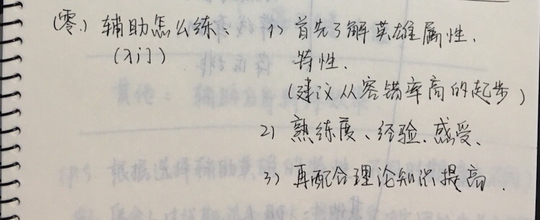 (零) 辅助怎么练: 1) 首先了解英雄属性、
(入门) 特性.
(建议从容错率高的起步)
2) 熟练度、经验、感受、
3) 再配合理论知识提高